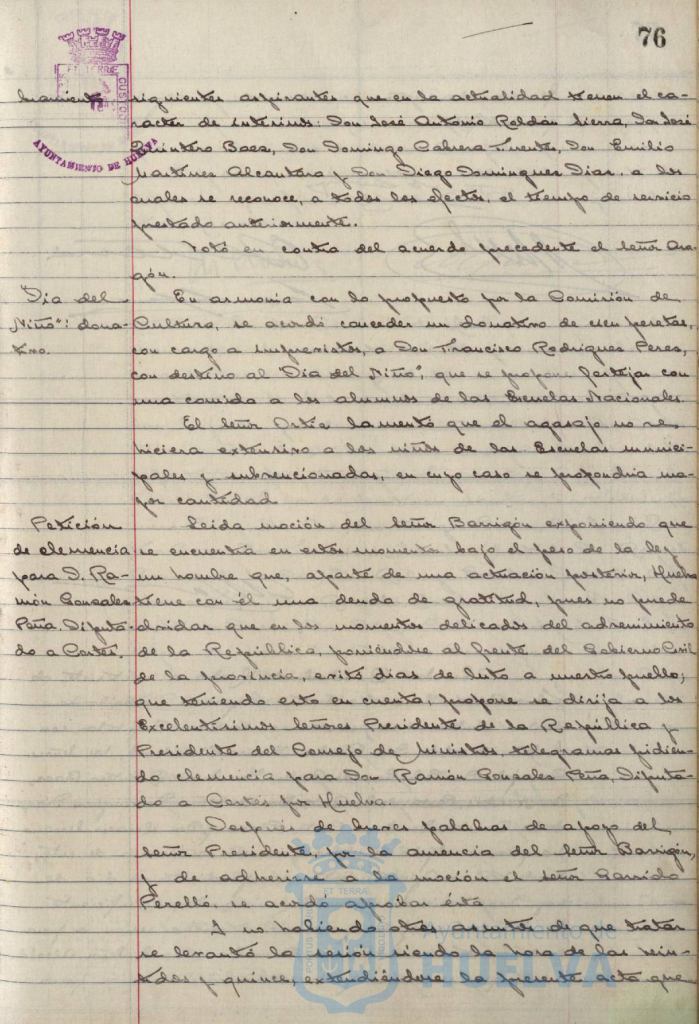 76
AYUNTAMIENTO DE HUELVA
siguientes aspirantes que en la actualidad tienen el ca-
racter de interinos: Don José Antonio Roldán Sierra, Don José
Quintero Baez, Don Domingo Cabrera Fuentes, Don Emilio
Martinez Alcantara y Don Diego Dominguez Diaz, a los
cuales se reconoce, a todos los efectos, el tiempo de servicio
prestado anteriormente.
Votó en contra del acuerdo precedente el señor Ara-
gón.
"Dia del
Niño": dona-
tivo.
En armonia con lo propuesto por la Comisión de
Cultura, se acordó conceder un donativo de cien pesetas,
con cargo a imprevistos, a Don Francisco Rodriguez Perez,
con destino al "Dia del Niño", que se propone festejar con
una comida a los alumnos de las Escuelas Nacionales.
El señor Ortiz lamentó que el agasajo no se
hiciera extensivo a los niños de las Escuelas munici-
pales y subvencionadas, en cuyo caso se propondria ma-
yor cantidad
Petición
de clemencia
para D. Ra-
món Gonzalez
Peña, Diputa-
do a Cortes.
Leida moción del señor Barrigón exponiendo que
se encuentra en estos momentos bajo el peso de la ley
un hombre que, aparte de una actuación posterior, Huelva
tiene con él una deuda de gratitud, pues no puede
olvidar que en los momentos delicados del advenimiento
de la República, poniéndose al frente del Gobierno Civil
de la provincia, evitó dias de luto a nuestro pueblo;
que teniendo esto en cuenta, propone se dirija a los
Excelentisimos señores Presidente de la República y
Presidente del Consejo de Ministros, telegramas pidien-
do clemencia para Don Ramón Gonzalez Peña, Diputa-
do a Cortes por Huelva.
Después de breves palabras de apoyo del
señor Presidente, por la ausencia del señor Barrigón,
y de adherirse a la moción el señor Garrido
Perelló, se acordó aprobar ésta
Y no habiendo otros asuntos de que tratar
se levantó la sesión siendo la hora de las vein-
tidos y quince, extendiéndose la presente acta que
Ayuntamiento de
HUELVA